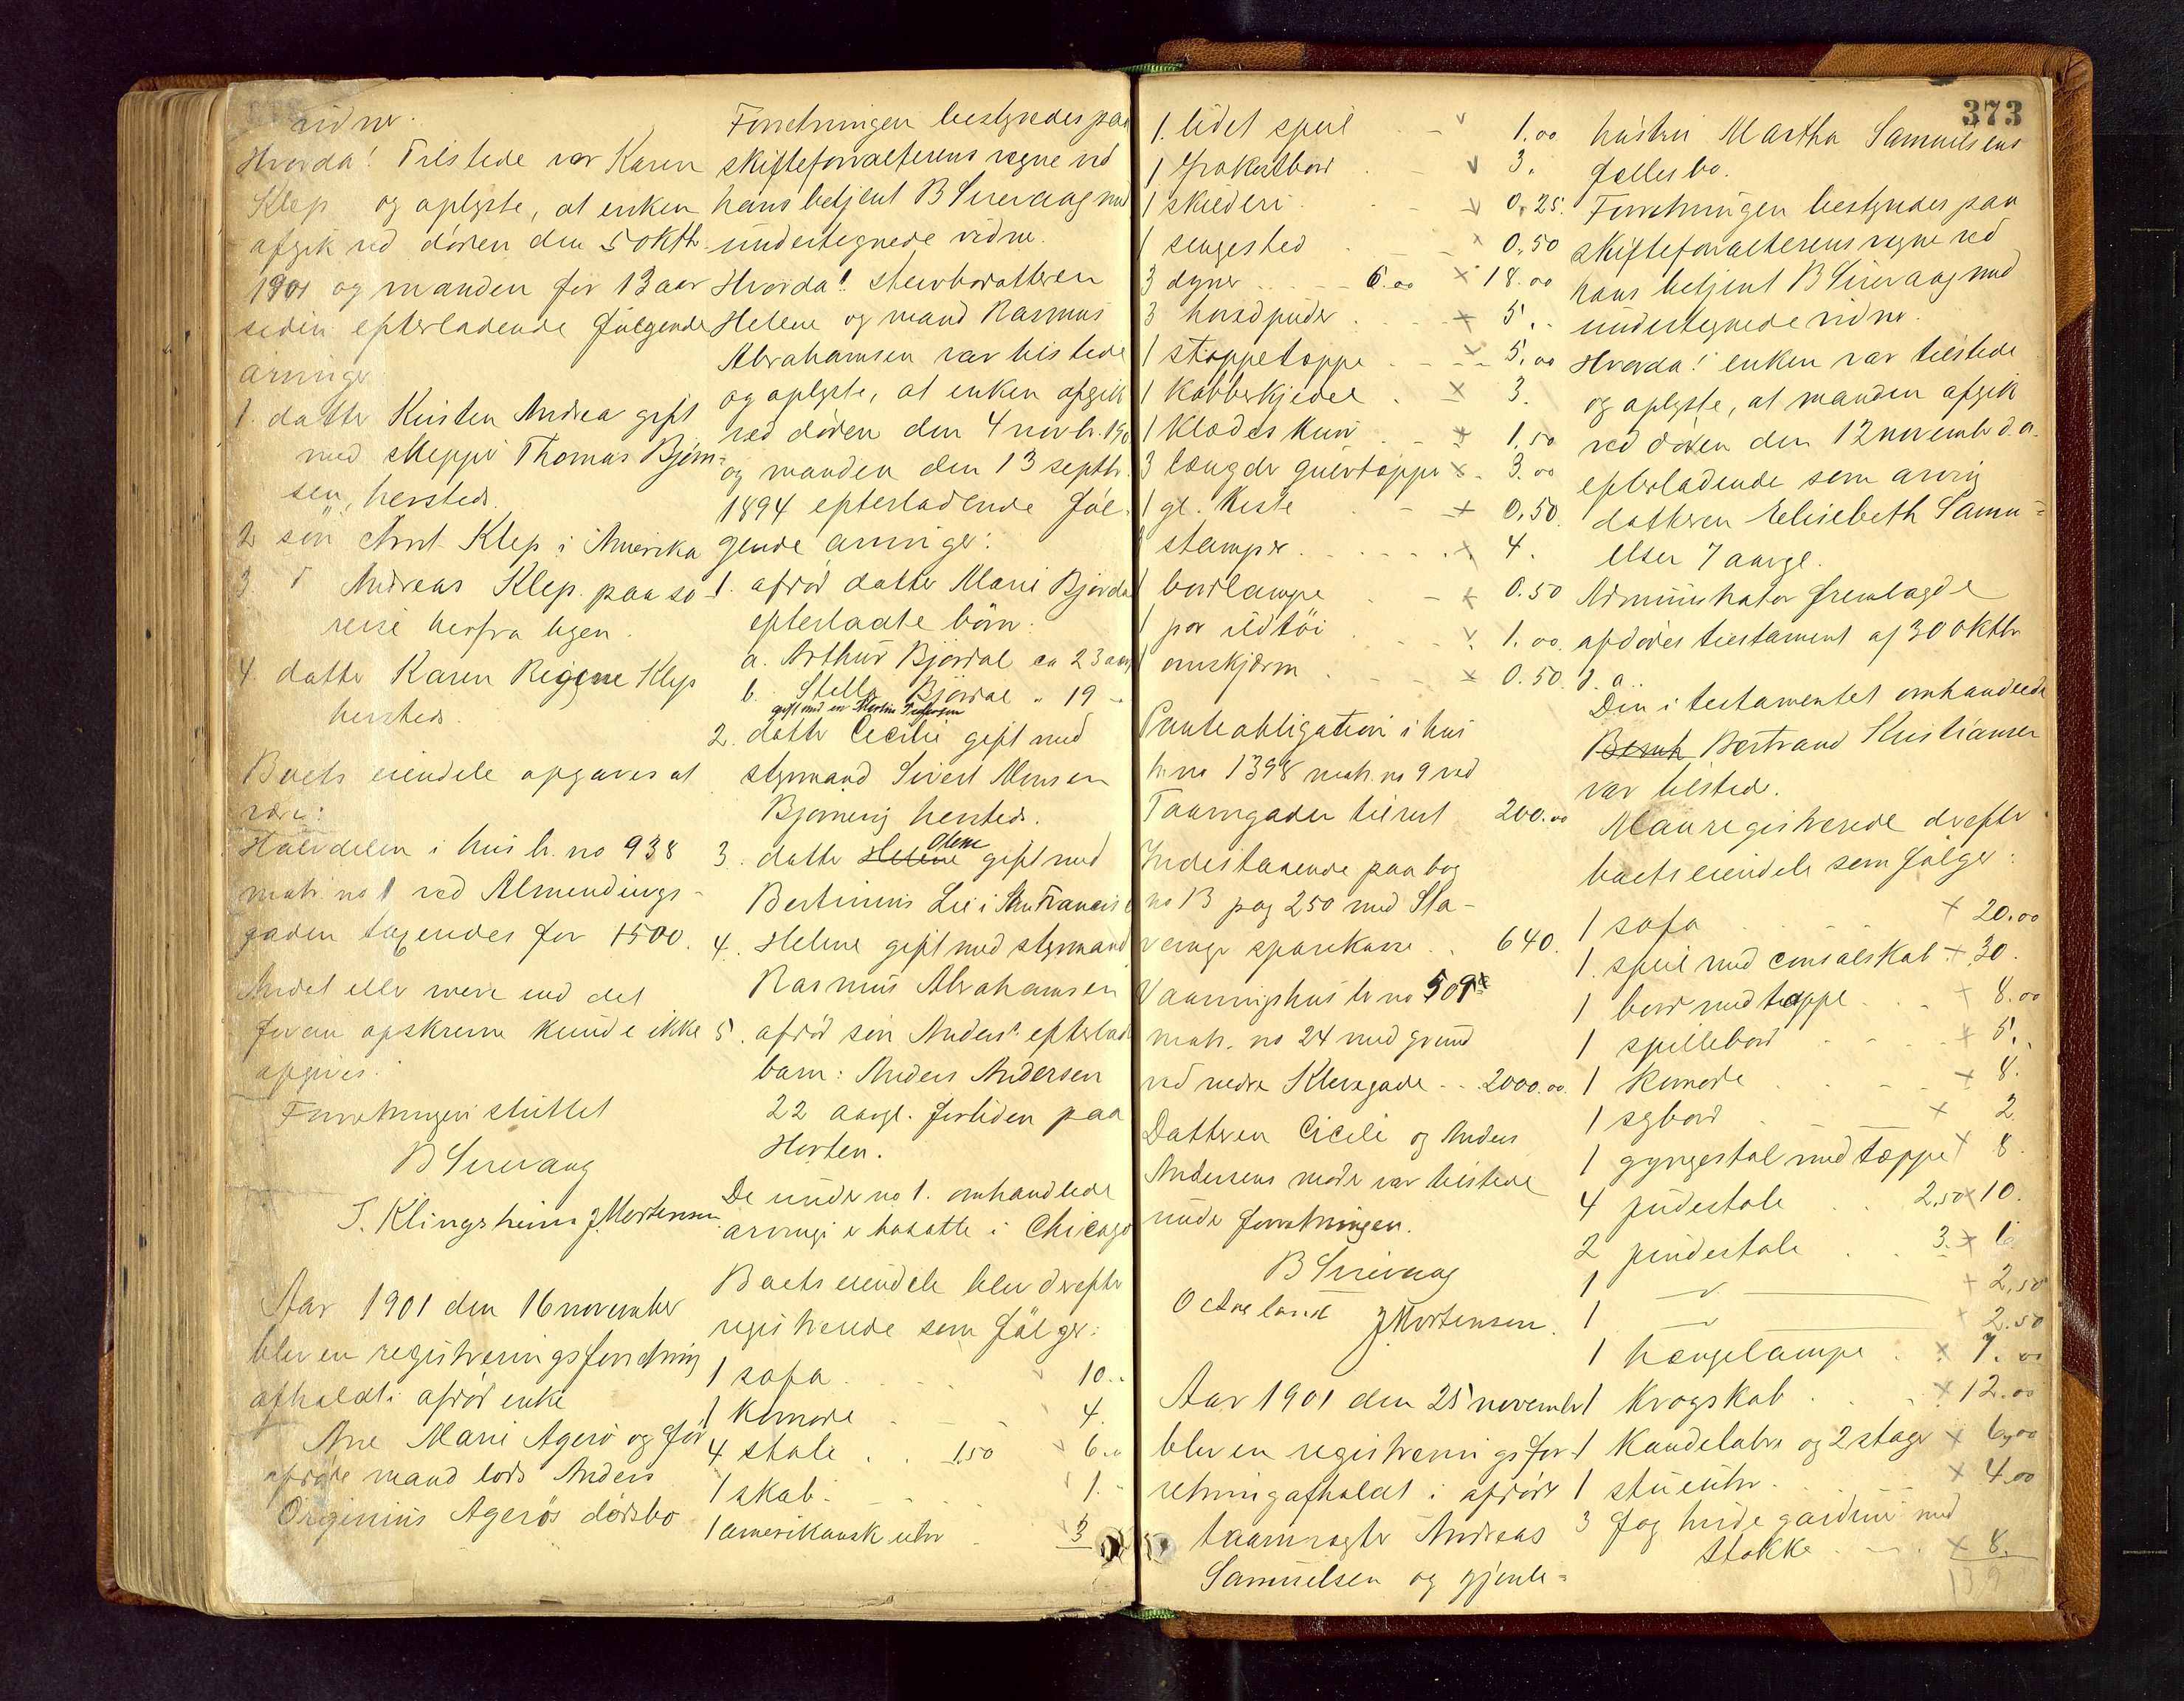 vidner.
Hvorda! Tilstede var Karen
Klep og oplyste, at enken
afgik ved døden den 5 oktbr.
1901 og manden for 13 aar
siden efterladende følgende
arvinger
1. datter Kirsten Andrea gift
med skipper Thomas Bjørn=
sen, hersteds.
2 søn Arnt Klep i Amerika
3 " Andreas Klep paa sø-
reise herfra byen.
4. datter Karen Regine Klep
hersteds.
Boets eiendele opgaves at
være:
Halvdelen i hus br. no 938
matr. no 1 ved Almendings-
gaden taxeredes for 1500.
Andet eller mere end det
foran opskrevne kunde ikke
opgives.
Forretningen sluttet
B Sirevaag
T. Klingsheim J. Mortensen
Aar 1901 den 16 november
blev en registreringsforretning
afholdt i afdød enke
Ane Marie Agerø og før
afdøde mand lods Anders
Orginius Agerøs dødsbo
Forretningen bestyredes paa
skifteforvalterens vegne ved
hans betjent B Sirevaag med
undertegnede vidner.
Hvorda! Stervbodatteren
Helene og mand Rasmus
Abrahamsen var tilstede
og oplyste, at enken afgik
ved døden den 4 novbr. 190
og manden den 13 septbr.
1894 efterladende føl-
gende arvinger:
1. afdød datter Marie Bjørdal
efterladte børn:
a. Arthur Bjørdal ca 23 aar
b. Stella Bjørdal " 19 -
gift med en Martin Pedersen
2. datter Cecilie gift med
styrmand Sivert Monsen
Bjørnevig hersteds.
3. datter Helene Olene gift med
Bertinius Lie i San Francisco
4. Helene gift med styrmand
Rasmus Abrahamsen
5. afdød søn Anders' efterladte
barn: Anders Andersen
22 aargl. fortiden paa
Horten.
De under no 1. omhandlede
arvinger er bosatte i Chicago
Boets eiendele blev derefter
registrerede som følger:
1 sofa 10..
1 komode 4.
4 stole . . 1.50 6..
1 skab. 1.-
1 amerikansk uhr 3
373
1. lidet speil 1.00
1 firkantbord 3.
1 skilderi 0.25.
1 sengested 0.50
3 dyner 6.00 × 18.00
3 hovedpuder × 5..
1 stoppeteppe × 5.00
1 kobberkjedel × 3.
1 klædeskurv × 1,50
3 længder gulvtæpper × 3.00
1 gl. kiste × 0.50.
stamper × 4.
1 bordlampe × 0.50
1 par ildtøi 1.00.
1 ovnskjærm × 0.50.
Panteobligation i hus
br. no 1398 matr. no 9 ved
Taarngaden tilrest 200.00
Indestaaende paa bog
no 13 pag 250 med Sta-
vanger sparekasse . . 640.
Vaaningshus br no 509a
matr. no 24 med grund
ved nedre Klevegade - - 2000.00.
Datteren Cicilie og Anders
Andersens moder var tilstede
under forretningen.
B Sirevaag
O Aneland J. Mortensen.
Aar 1901 den 25 november
blev en registreringsfor-
retning afholdt i afdøde
taarnvægter Andreas
Samuelsen og gjenle=
hustru Martha Samuelsens
fællesbo.
Forretningen bestyredes paa
skifteforvalterens vegne ved
hans betjent B Sirevaag med
undertegnede vidner.
Hvorda! enken var tilstede
og oplyste, at manden afgik
ved døden den 12 novembr d.a.
efterladende som arving
datteren Elisebeth Samu=
elsen 7 aargl.
Administrator fremlagde
afdødes testament af 30 oktbr
d. a..
Den i testamentet omhandlede
Bernh Bertrand Kristiansen
var tilstede.
Man registrerede derefter
boets eiendele som følger:
1 sofa × 20.00
1. speil med consolskab × 30.
1 bord med tæppe × 8.00
1 spillebord × 5..
1 komode × 8.
1 sybord × 2
1 gyngestol med tæppe × 8.
4 pudestole . . 2,50 × 10.
2 pindestole . . 3. × 6
1 " × 2,50
1 " × 2.50
1 hængelampe × 7.00
1 krogskab × 12.00
1 kandelabre og 2 stager × 6,00
1 stueuhr × 4.00
3 fag hvide gardiner med
stokke × 8.
139